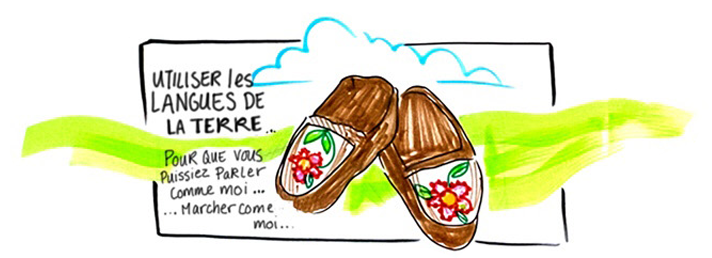 UTILISER les
LANGUES DE
LA TERRE...
POUR QUE VOUS
PUISSIEZ PARLER
COMME MOI...
... MARCHER COME
MOI...